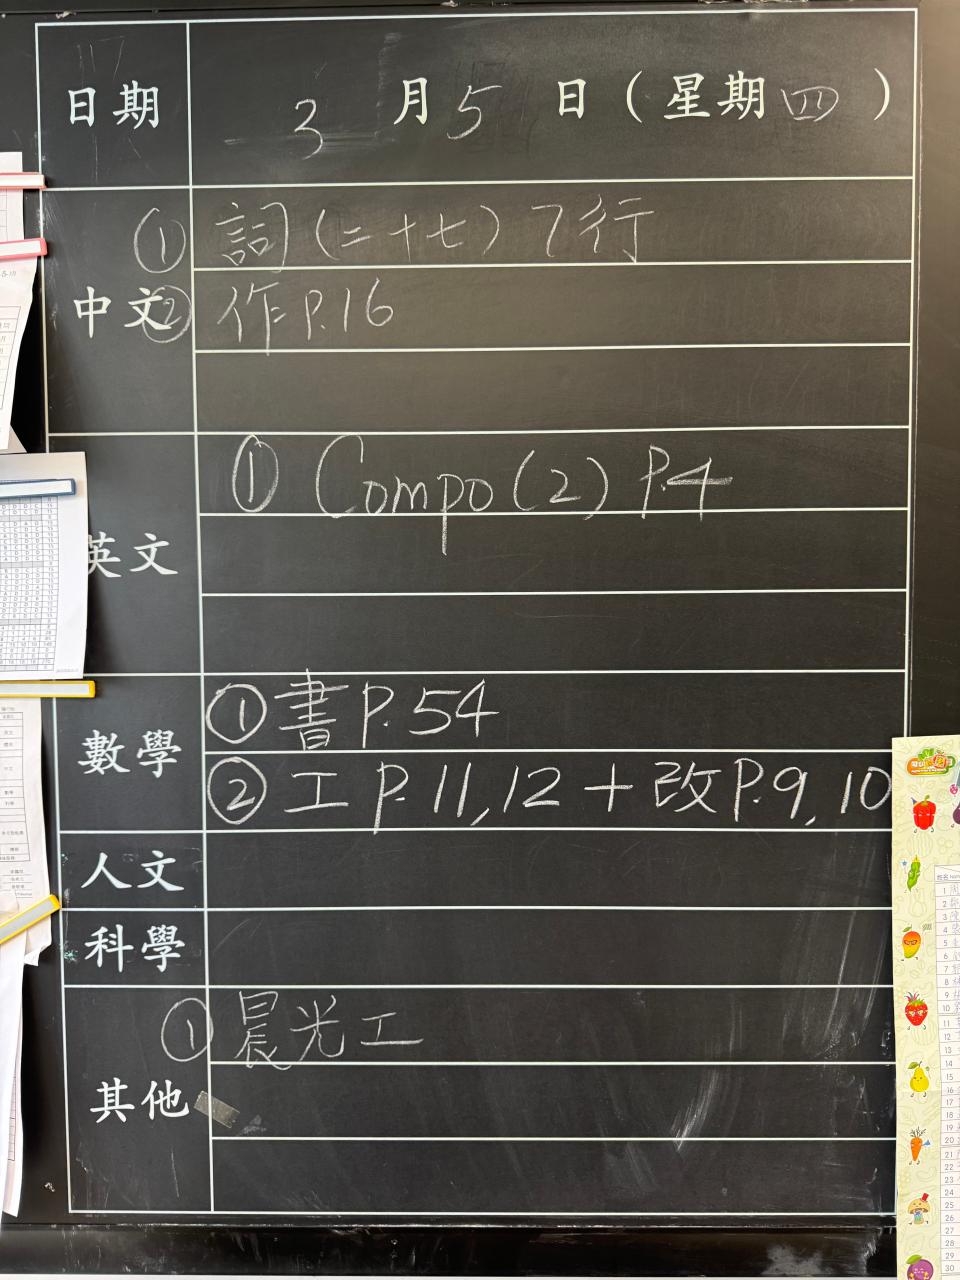 日期 3月5日（星期四）
中文
① 詞(二十七) 7行
② 作P.16
英文
① Compo(2) P.4
數學
① 書P.54
② 工 P.11,12 + 改P.9,10
人文
科學
其他
① 晨光工